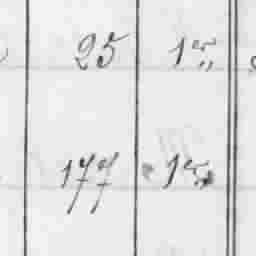 25 1 er „
177 1 er „